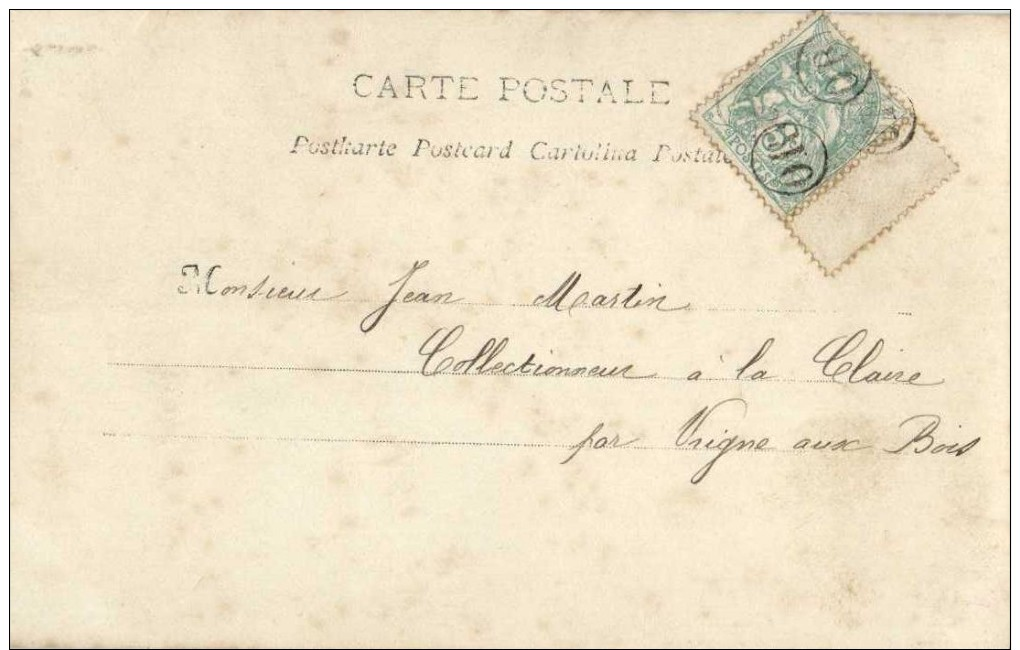 CARTE POSTALE
Postkarte Postcard Cartolina Postale
Monsieur Jean Martin
Collectionneur à la Claire
par Vrigne aux Bois